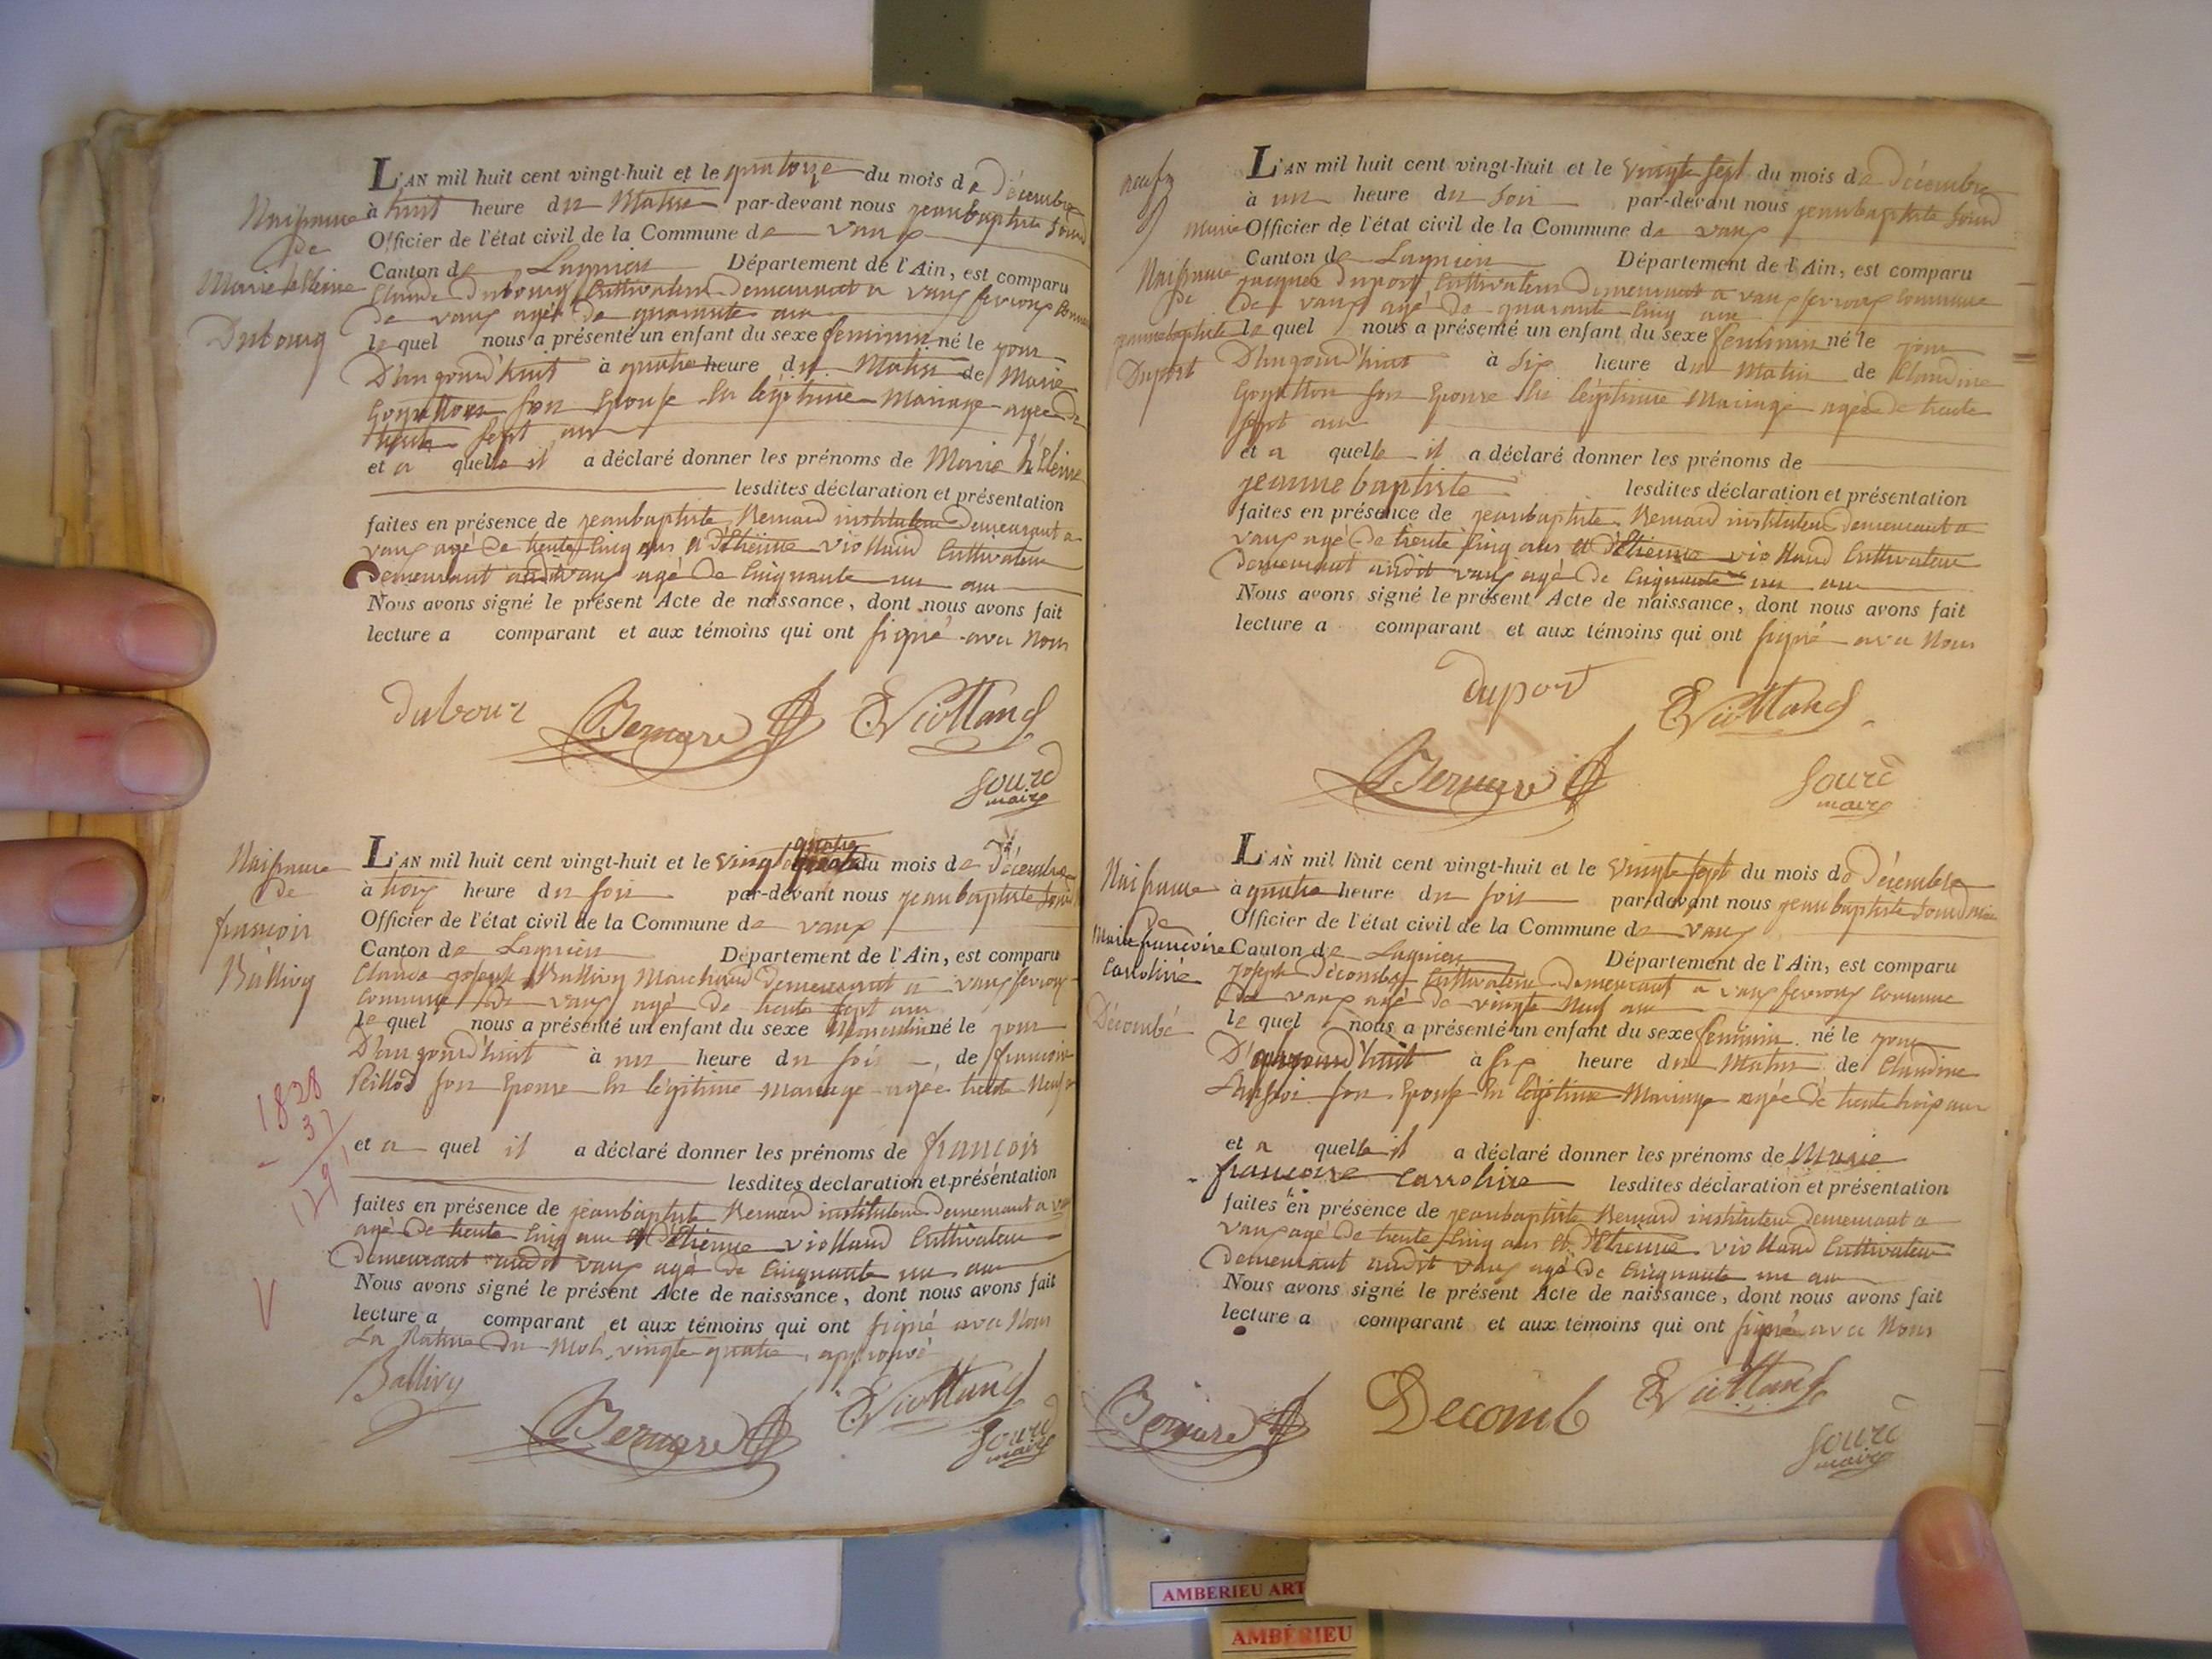 Naissance
de
Marie hélleine
Dubourg
L'AN mil huit cent vingt-huit et le quatorze du mois de Décembre
à huit heure du Matin par-devant nous jeanbaptiste Sourd
Officier de l'état civil de la Commune de vaux
Canton de Lagnieu Département de l'Ain, est comparu
Claude Dubourg Cultivateur demeurant a vaux fevroux Commune
de vaux agé de quarante ans
lequel nous a présenté un enfant du sexe feminin né le jour
D'aujourd'huit à quatre heure du Matin de Marie
son Epouse En légitime Mariage agée de
trente sept ans
et a quelle il a déclaré donner les prénoms de Marie hélleine
lesdites déclaration et présentation
faites en présence de jeanbaptiste Bernard instituteur demeurant a
vaux agé de trente cinq ans et d'Etienne violland Cultivateur
demeurant audit vaux agé de Cinquante un ans
Nous avons signé le présent Acte de naissance, dont nous avons fait
lecture a comparant et aux témoins qui ont signé avec Nous
dubour Bernard EViolland
Sourd
maire
Naissance
de
francois
Ballivy
L'AN mil huit cent vingt-huit et le vingt quatre du mois de Décembre
à trois heure du soir par-devant nous jeanbaptiste Sourd
Officier de l'état civil de la Commune de vaux
Canton de Lagnieu Département de l'Ain, est comparu
Claude joseph Ballivy Marchand demeurant a vaux fevroux
Commune de vaux agé de trente sept ans
lequel nous a présenté un enfant du sexe Masculin né le jour
D'aujourd'huit à un heure du soir de francoise
Peillod son Epouse En légitime Mariage agée trente Neuf
1828
37
1791
et a quel il a déclaré donner les prénoms de francois
lesdites declaration et présentation
faites en présence de jeanbaptiste Bernard instituteur demeurant a
agé de trente cinq ans et d'Etienne viollaud Cultivateur
demeurant audit vaux agé de Cinquante un ans
Nous avons signé le présent Acte de naissance, dont nous avons fait
lecture a comparant et aux témoins qui ont signé avec Nous
La Rature du Mot vingte quatre, approuvé
Ballivy Bernard EViolland
Sourd
maire
Marie
Naissance
de
jeannebaptiste
Duport
L'AN mil huit cent vingt-huit et le vingte sept du mois de Décembre
à un heure du Soir par-devant nous jeanbaptiste Sourd
Officier de l'état civil de la Commune de vaux
Canton de Lagnieu Département de l'Ain, est comparu
jacques Duport Cultivateur demeurant a vaux fevroux Commune
de vaux agé de quarante Cinq ans
lequel nous a présenté un enfant du sexe feminin né le jour
D'aujourd'huit à six heure du Matin de Claudine
son Eponse En légitime Mariage agée de trente
sept ans
et a quelle il a déclaré donner les prénoms de
jeanne baptiste lesdites déclaration et présentation
faites en présence de jeanbaptiste Bernard instituteur demeurant a
vaux agé de trente cinq ans et d'Etienne viollaud Cultivateur
demeurant audit vaux agé de Cinquante un ans
Nous avons signé le présent Acte de naissance, dont nous avons fait
lecture a comparant et aux témoins qui ont signé avec Nous
duport EViolland
Bernard Sourd
maire
Naissance
de
Marie francoise
Carroline
Décombé
L'AN mil huit cent vingt-huit et le vingte sept du mois de Décembre
à quatre heure du soir par-devant nous jeanbaptiste Sourd
Officier de l'état civil de la Commune de vaux
Canton de Lagnieu Département de l'Ain, est comparu
joseph Décombe Cultivateur demeurant a vaux fevroux Commune
de vaux agé de vingte Neuf ans
lequel nous a présenté un enfant du sexe feminin né le jour
D'aujourd'huit à six heure du Matin de Claudine
son Epouse En légitime Mariage agée de trente trois ans
et a quelle il a déclaré donner les prénoms de Marie
francoise Carroline lesdites déclaration et présentation
faites en présence de jeanbaptiste Bernard instituteur demeurant a
vaux agé de trente cinq ans et d'Etienne viollaud Cultivateur
demeurant audit vaux agé de Cinquante un ans
Nous avons signé le présent Acte de naissance, dont nous avons fait
lecture a comparant et aux témoins qui ont signé avec Nous
Bernard Decomb EViolland
Sourd
maire
AMBERIEU ART
AMBERIEU